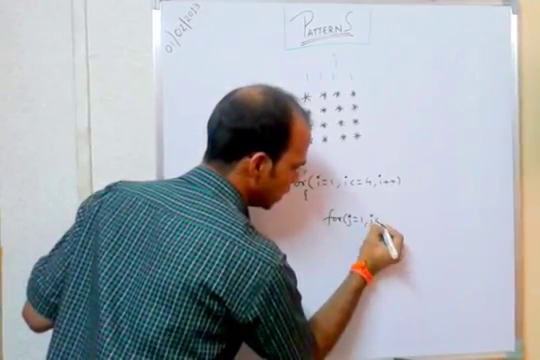 01/02/2013
PATTERNS
i
1 1 1 1
* * * *
* * *
* * * *
* * * *
for(i=1,i<=4,i++)
{
for(j=1,j<